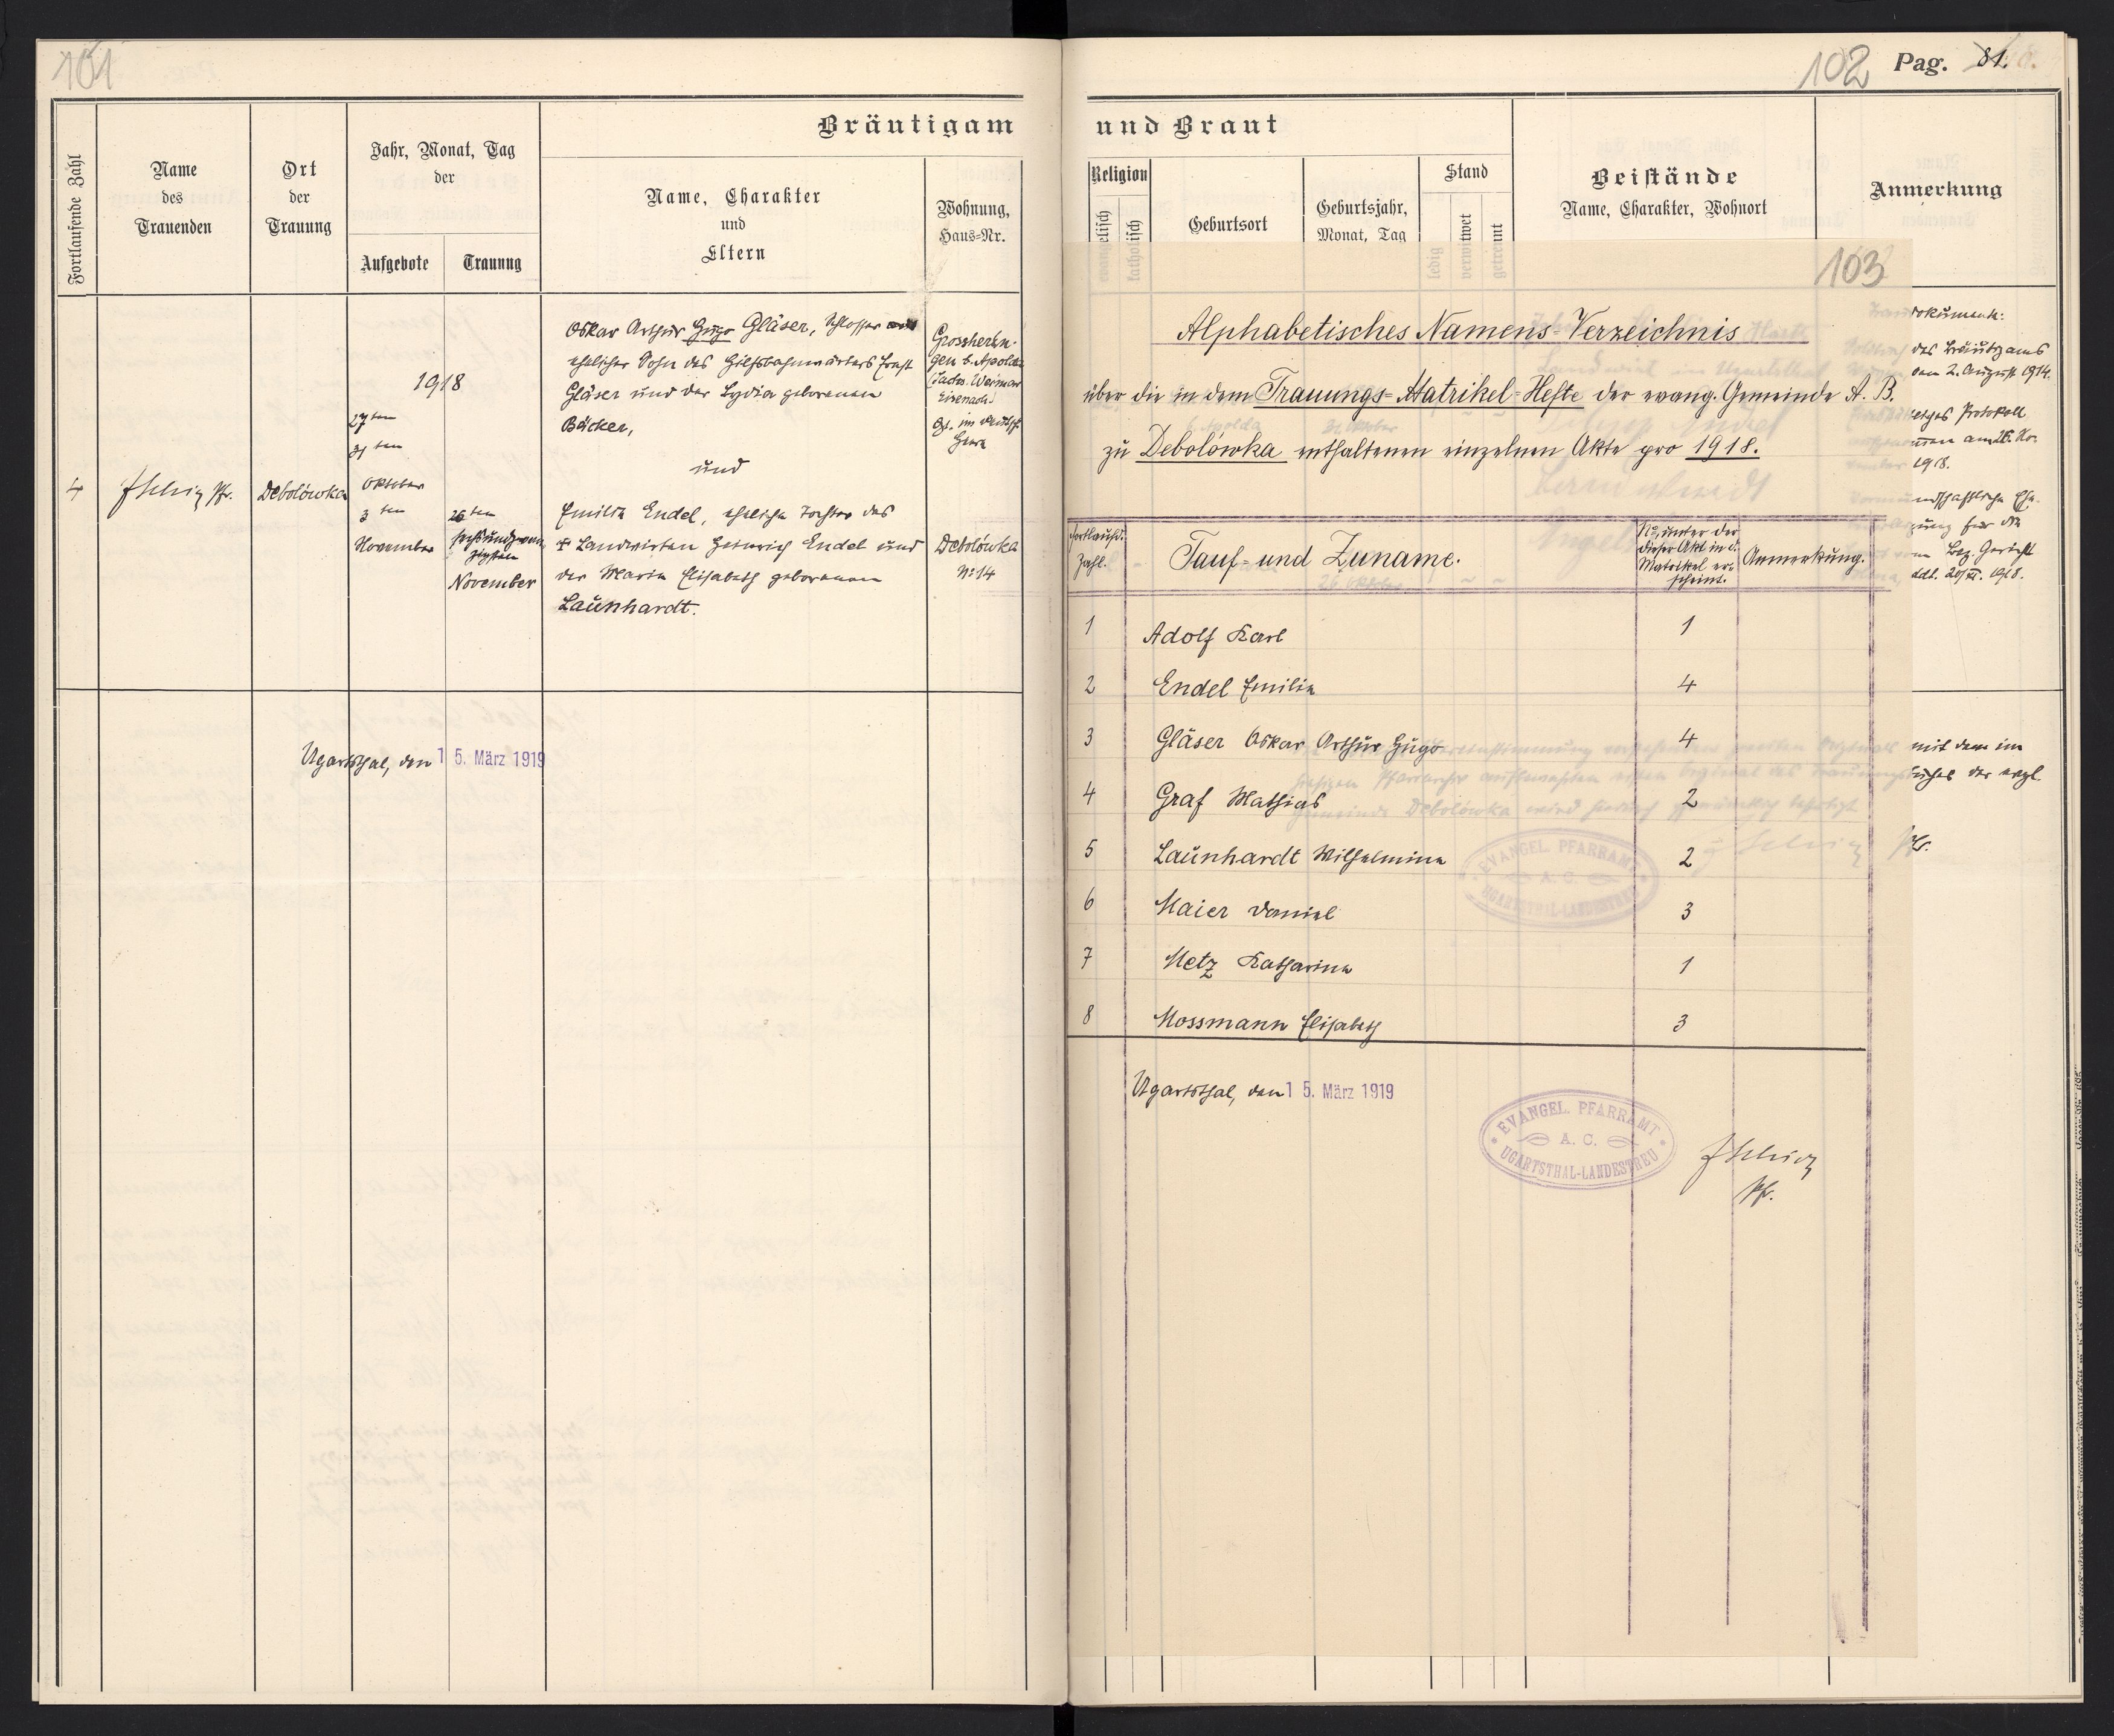 101
Bräutigam
Fortlaufende Zahl
Name
des
Trauenden
Ort
der
Trauung
Jahr, Monat, Tag
der
Aufgebote
Trauung
Name, Charakter
und
Eltern
Wohnung,
Haus-Nr.
1918
27ten
31ten
Oktober
3ten
November
4
Pfr.
Debolówka
26ten
sechsundzwan
zigsten
November
Oskar Arthur Hugo Gläser, Schlosser
ehelicher Sohn des Hilfsbahnwärters Ernst
Gläser und der Lydia geborenen
Bäcker,
und
Emilie Endel, eheliche Tochter des
† Landwirten Heinrich Endel und
der Maria Elisabeth geborenen
Launhardt.
Grossherin-
gen b. Apolda
(Sachs. Weimar
Eisenach)
Debolówka
No 14
Ugartsthal, den 15. März 1919
102 Pag. 81.
und Braut
Religion
Geburtsort
Geburtsjahr,
Monat, Tag
Stand
ledig
verwitwet
getrennt
Beistände
Name, Charakter, Wohnort
Anmerkung
103
Alphabetisches Namens-Verzeichnis
über die in dem Trauungs-Matrikel-Hefte der evang. Gemeinde A. B.
zu Debolówka enthaltenen einzelnen Akte pro 1918.
Fortlaufd.
Zahl.
Tauf- und Zuname.
No, unter der
dieser Akt in d.
Matrikel er-
scheint.
Anmerkung.
1 Adolf Karl 1
2 Endel Emilie 4
3 Gläser Oskar Arthur Hugo 4
4 Graf Mathias 2
5 Launhardt Wilhelmine 2
6 Maier Daniel 3
7 Metz Katharina 1
8 Mossmann Elisabeth 3
Ugartsthal, den 15. März 1919
EVANGEL. PFARRAMT
A. C.
UGARTSTHAL-LANDESTREU
Pfr.
dokumente:
des Bräutigams
vom 2. August 1914.
Protokoll
am 26. No-
1918.
für die
Bez. Gericht
ddt. 20/XI. 1918.
mit dem im
der evgl.
Pfr.